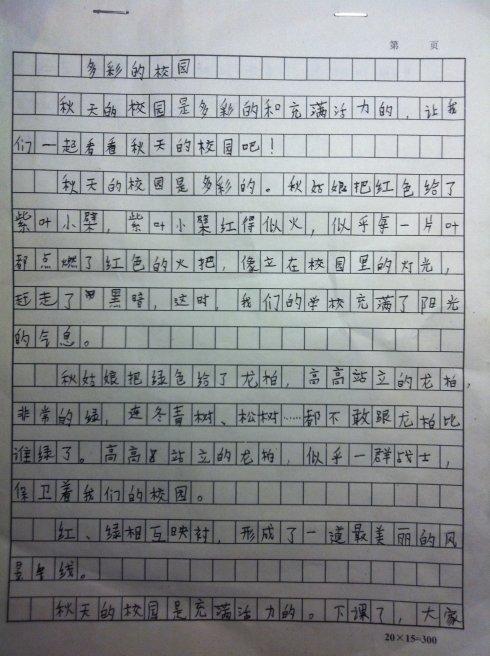 第 页
多彩的校园
秋天的校园是多彩的和充满活力的，让我
们一起看看秋天的校园吧！
秋天的校园是多彩的。秋姑娘把红色给了
紫叶小檗，紫叶小檗红得似火，似乎每一片叶
都点燃了红色的火把，像立在校园里的灯光，
赶走了黑暗，这时，我们的学校充满了阳光
的气息。
秋姑娘把绿色给了龙柏，高高站立的龙柏，
非常的绿，连冬青树、松树……都不敢跟龙柏比
谁绿了。高高站立的龙柏，似乎一群战士，
保卫着我们的校园。
红、绿相互映衬，形成了一道最美丽的风
景线。
秋天的校园是充满活力的。下课了，大家
20×15=300